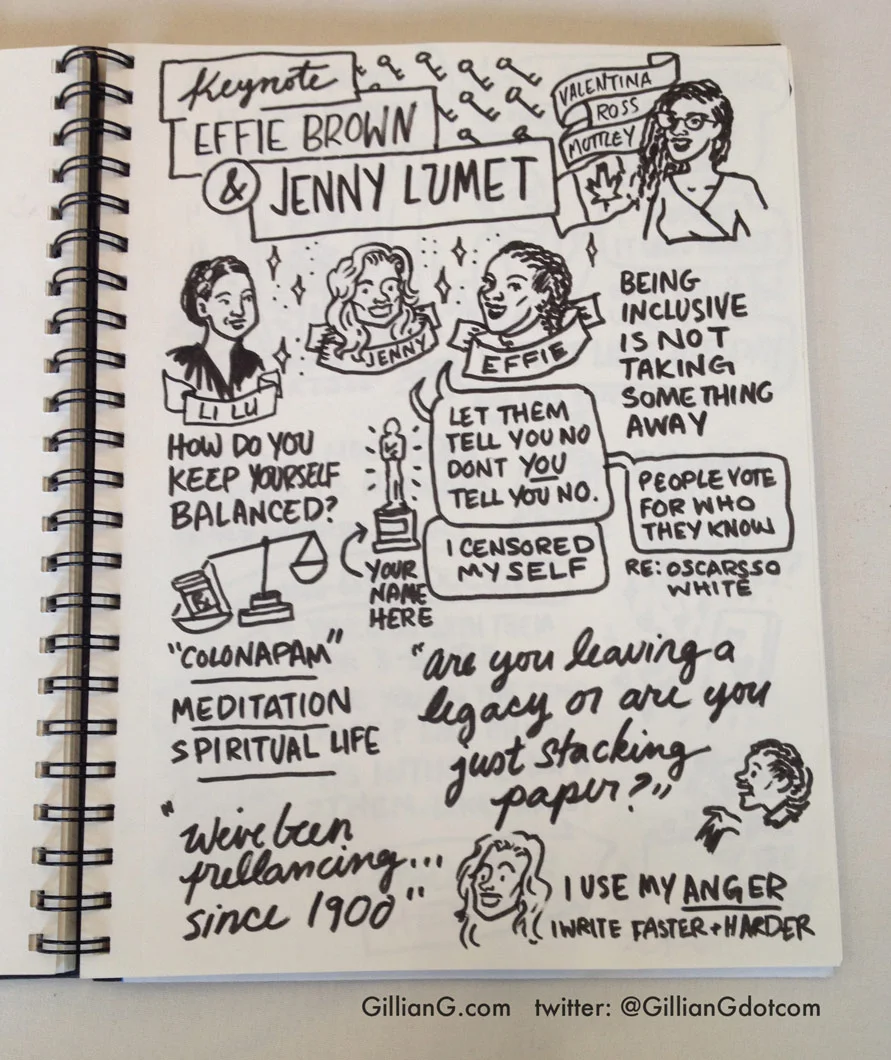 Keynote
EFFIE BROWN
& JENNY LUMET
VALENTINA
ROSS
MOTTLEY
LI LU
JENNY
EFFIE
BEING
INCLUSIVE
IS NOT
TAKING
SOMETHING
AWAY
HOW DO YOU
KEEP YOURSELF
BALANCED?
YOUR
NAME
HERE
LET THEM
TELL YOU NO
DONT YOU
TELL YOU NO.
I CENSORED
MYSELF
PEOPLE VOTE
FOR WHO
THEY KNOW
RE: OSCARSSO
WHITE
"COLONAPAM"
MEDITATION
SPIRITUAL LIFE
"are you leaving a
legacy or are you
just stacking
paper?"
"We've been
frellancing...
since 1900"
I USE MY ANGER
I WRITE FASTER + HARDER
GillianG.com twitter: @GillianGdotcom